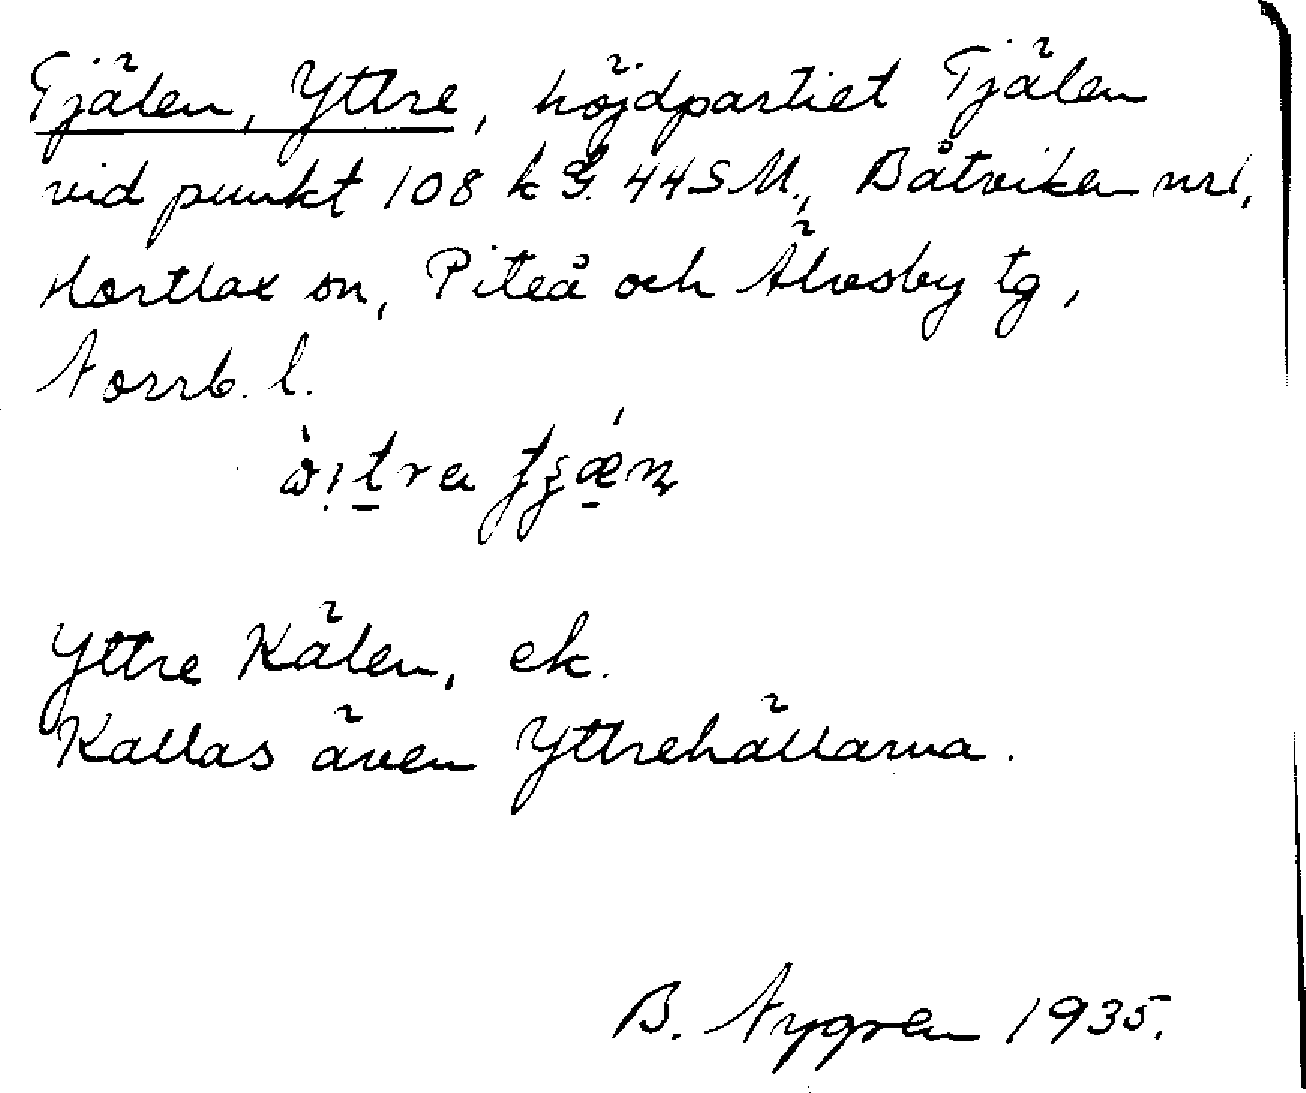 Tjälen, Yttre, höjdpartiet Tjälen
vid punkt 108 k G. 44 S M., Båtviken nr 1,
Hortlax sn, Piteå och Älvsby tg,
Norrb. l.
Yttre Kälen, ek.
Kallas även Yttrehällarna.
B. Nygren 1935.